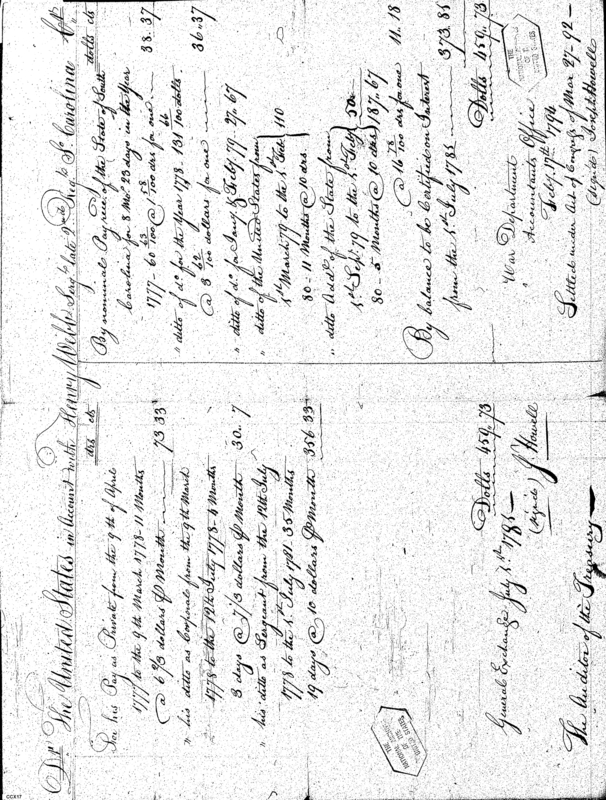 Dr. The United States in Account with Henry Webb Serj.t late 2.nd Reg.t So. Carolina Cr.
drs cts
For his Pay as Private from the 9th of April
1777 to the 9th March 1778 - 11 Months
@ 6 2/3 dollars P Month 73 33
" his ditto as Corporal from the 9th March
1778 to the 12th July 1778 - 4 Months
3 days @ 7 1/3 dollars P Month 30 .. 7
" his ditto as Sergeant from the 12th July
1778 to the 4th July 1781. 35 Months
19 days @ 10 dollars P Month 356 33
Dolls 459. 73
General Exchange July 4th 1785
(Signed) J Howell
The Auditor of the Treasury
dolls cts
By nominal Pay rec.d of the State of South
Carolina for 8 Mos. 23 days in the Year
1777 - 60 63/100 @ 1 58/100 drs for one 38.37
" ditto of do. for the Year 1778 131 44/100 dolls.
@ 3 62/100 dollars for one 36.37
" ditto of do. for Jany. & Feby. 179 .. 27.67
" ditto of the United States from
1st March 79 to the 1st Feby. 110
80 - 11 Months @ 10 drs
" ditto Addl. of the State from
1st Sept. 79 to the 1st Feby. 50
80 - 5 Months @ 10 drs 187..67
@ 16 78/100 drs for one 11.18
By balance to be Certified on Interest
from the 4th July 1785 373.85
Dolls 459.73
War Department
Accountants Office
Feby. 17th 1794
Settled under Act of Congress of Mar 27 - 92 -
(Signed) Joseph Howell
THE NATIONAL ARCHIVES OF THE UNITED STATES
THE NATIONAL ARCHIVES OF THE UNITED STATES
CCX17